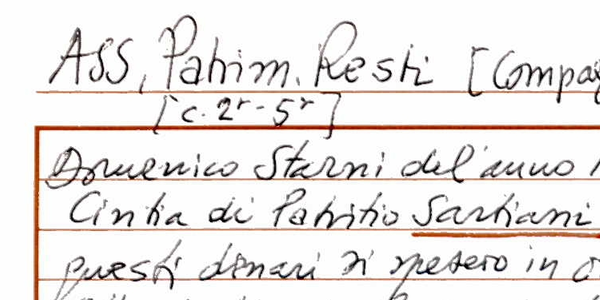 Ass. Patrim. Resti [Compag
[c. 2r - 5r]
Domenico Starni del'anno
Cintia di Patritio Sartiani
questi denari si spesero in o